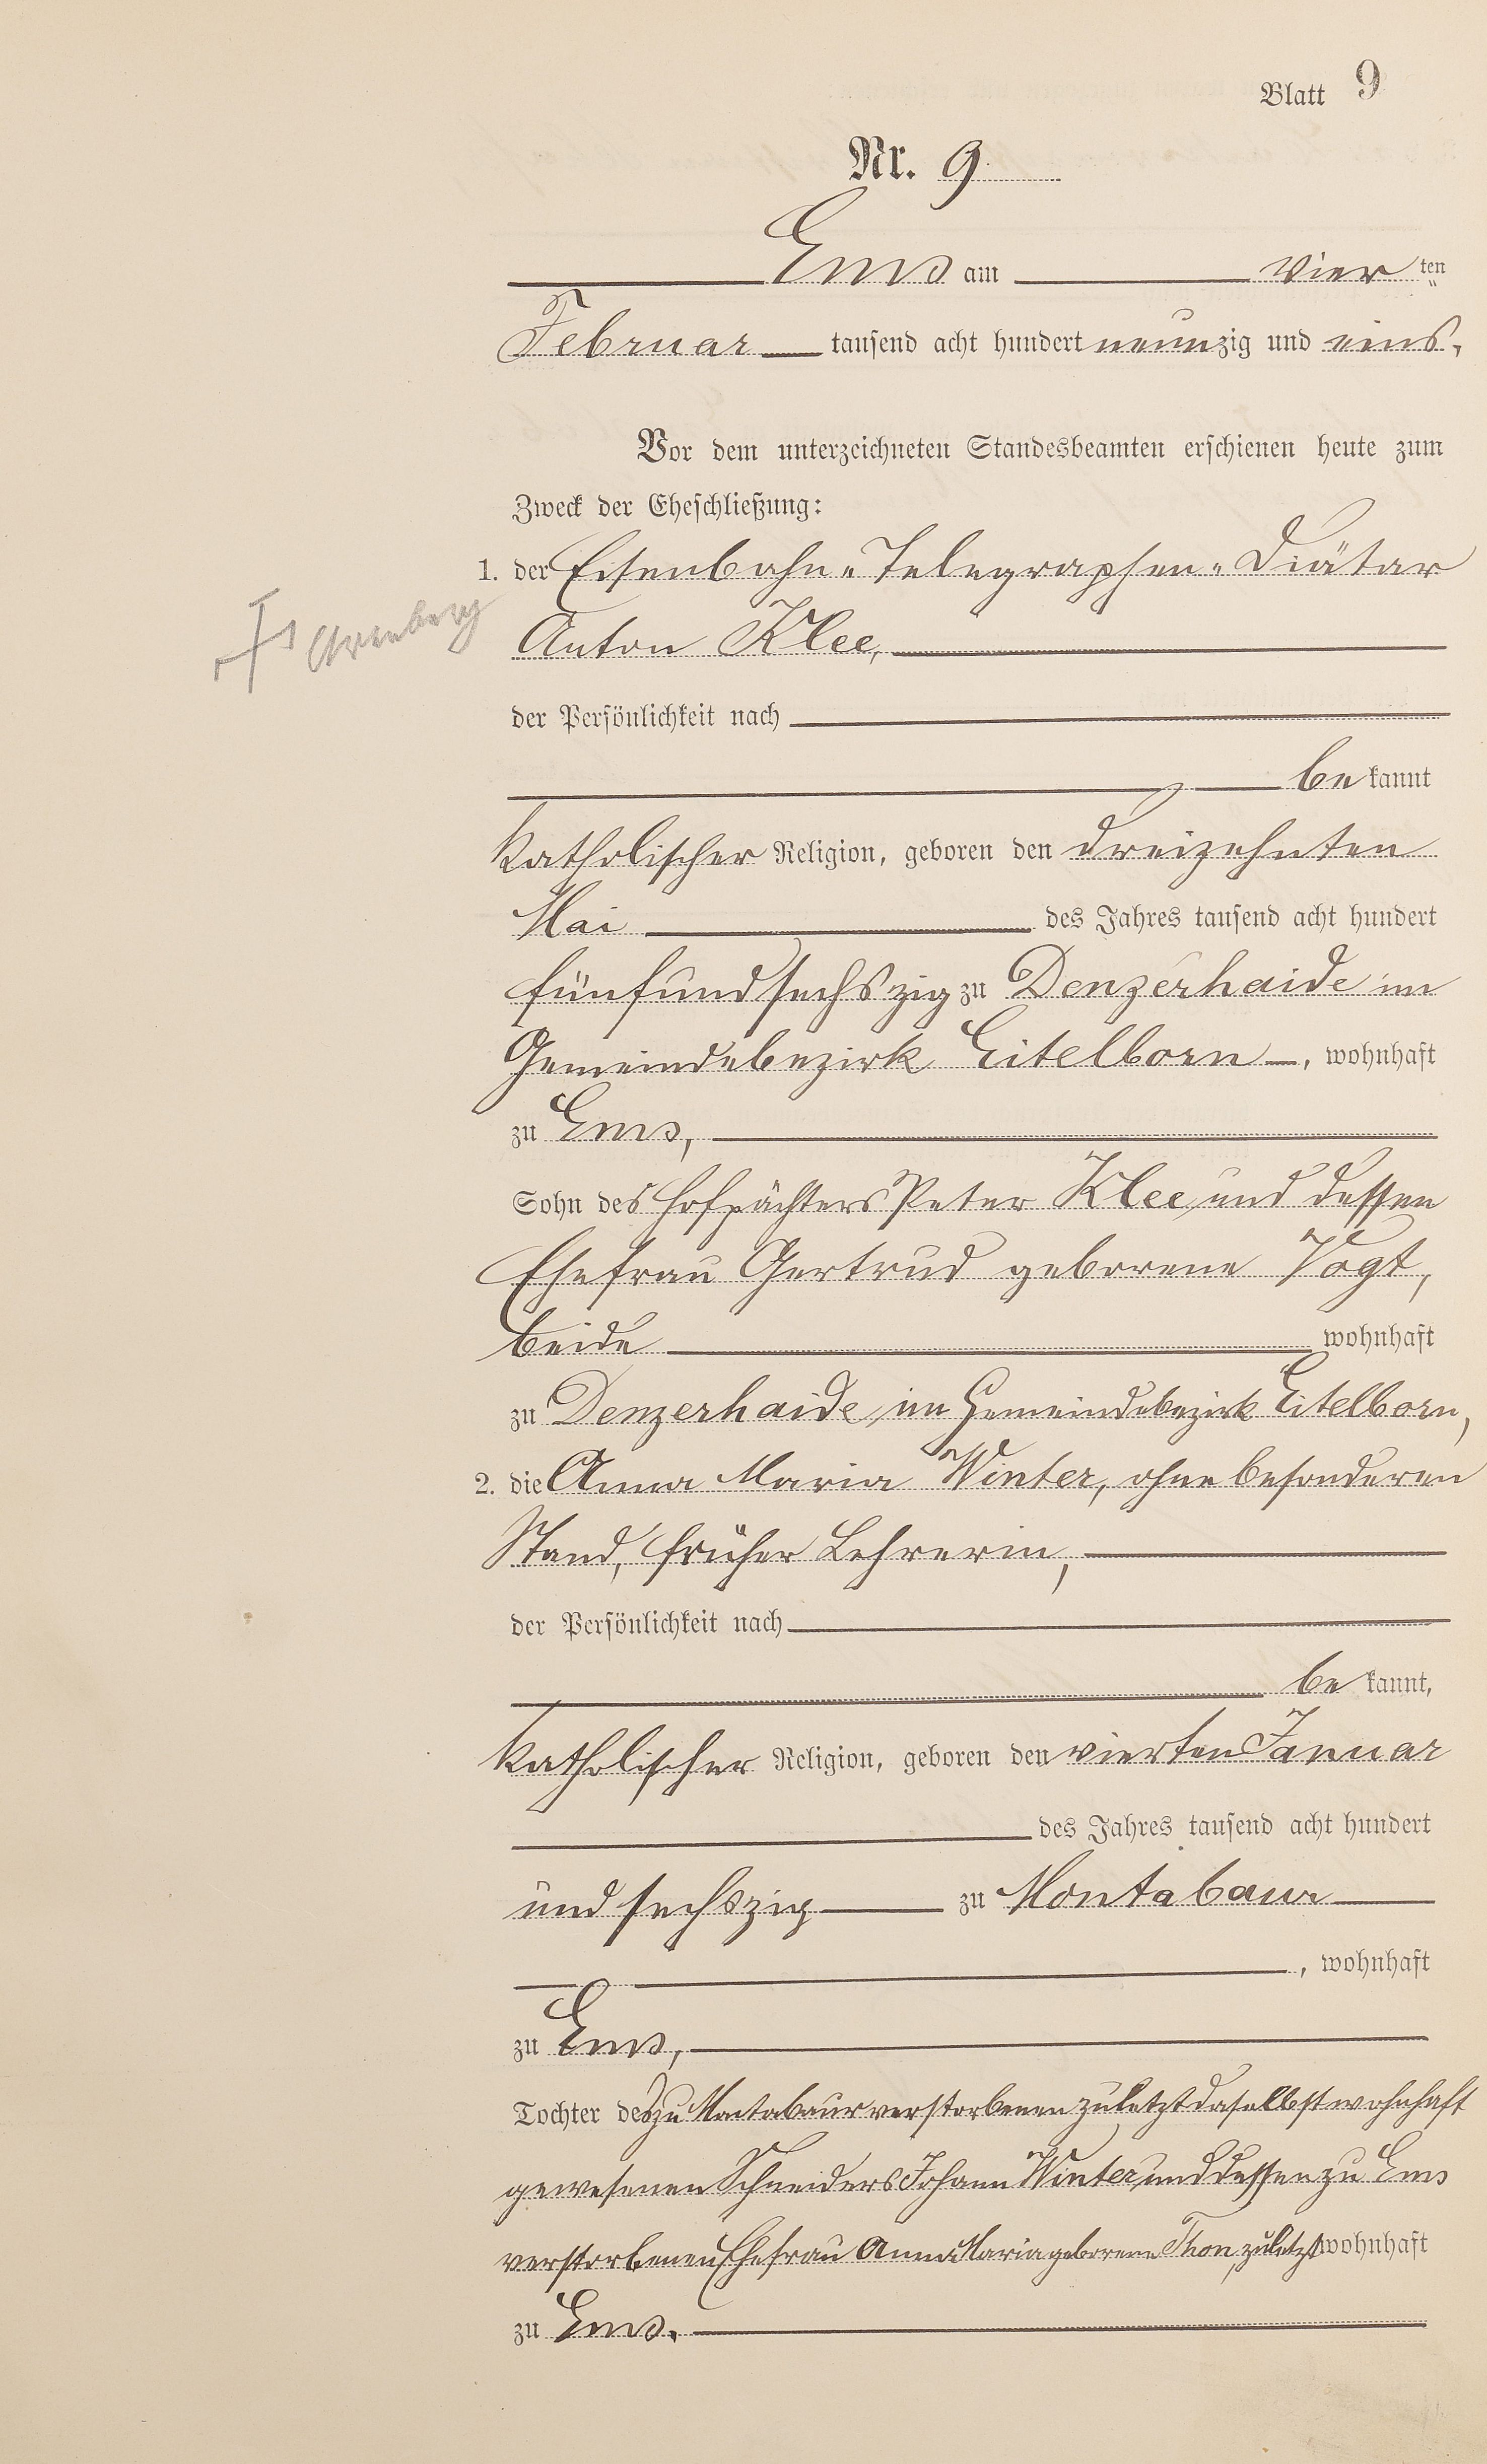 Blatt 9
Nr. 9
Ems am vier ten
Februar tausend acht hundert neunzig und eins,
Vor dem unterzeichneten Standesbeamten erschienen heute zum
Zweck der Eheschließung:
1. der Eisenbahn-Telegraphen-Diätar
Anton Klee,
der Persönlichkeit nach
be kannt
katholischer Religion, geboren den dreizehnten
Mai des Jahres tausend acht hundert
fünfundsechszig zu Denzerhaide im
Gemeindebezirk Eitelborn, wohnhaft
zu Ems,
Sohn des Hofpächters Peter Klee und dessen
Ehefrau Gertrud geborene Vogt,
beide wohnhaft
zu Denzerhaide im Gemeindebezirk Eitelborn,
2. die Anna Maria Winter, ohne besonderen
Stand, früher Lehrerin,
der Persönlichkeit nach
be kannt,
katholischer Religion, geboren den vierten Januar
des Jahres tausend acht hundert
und sechszig zu Montabaur
, wohnhaft
zu Ems,
Tochter des zu Montabaur verstorbenen zuletzt daselbst wohnhaft
gewesenen Schneiders Johann Winter und dessen zu Ems
verstorbenen Ehefrau Anna Maria geborene Thon, zuletzt wohnhaft
zu Ems.